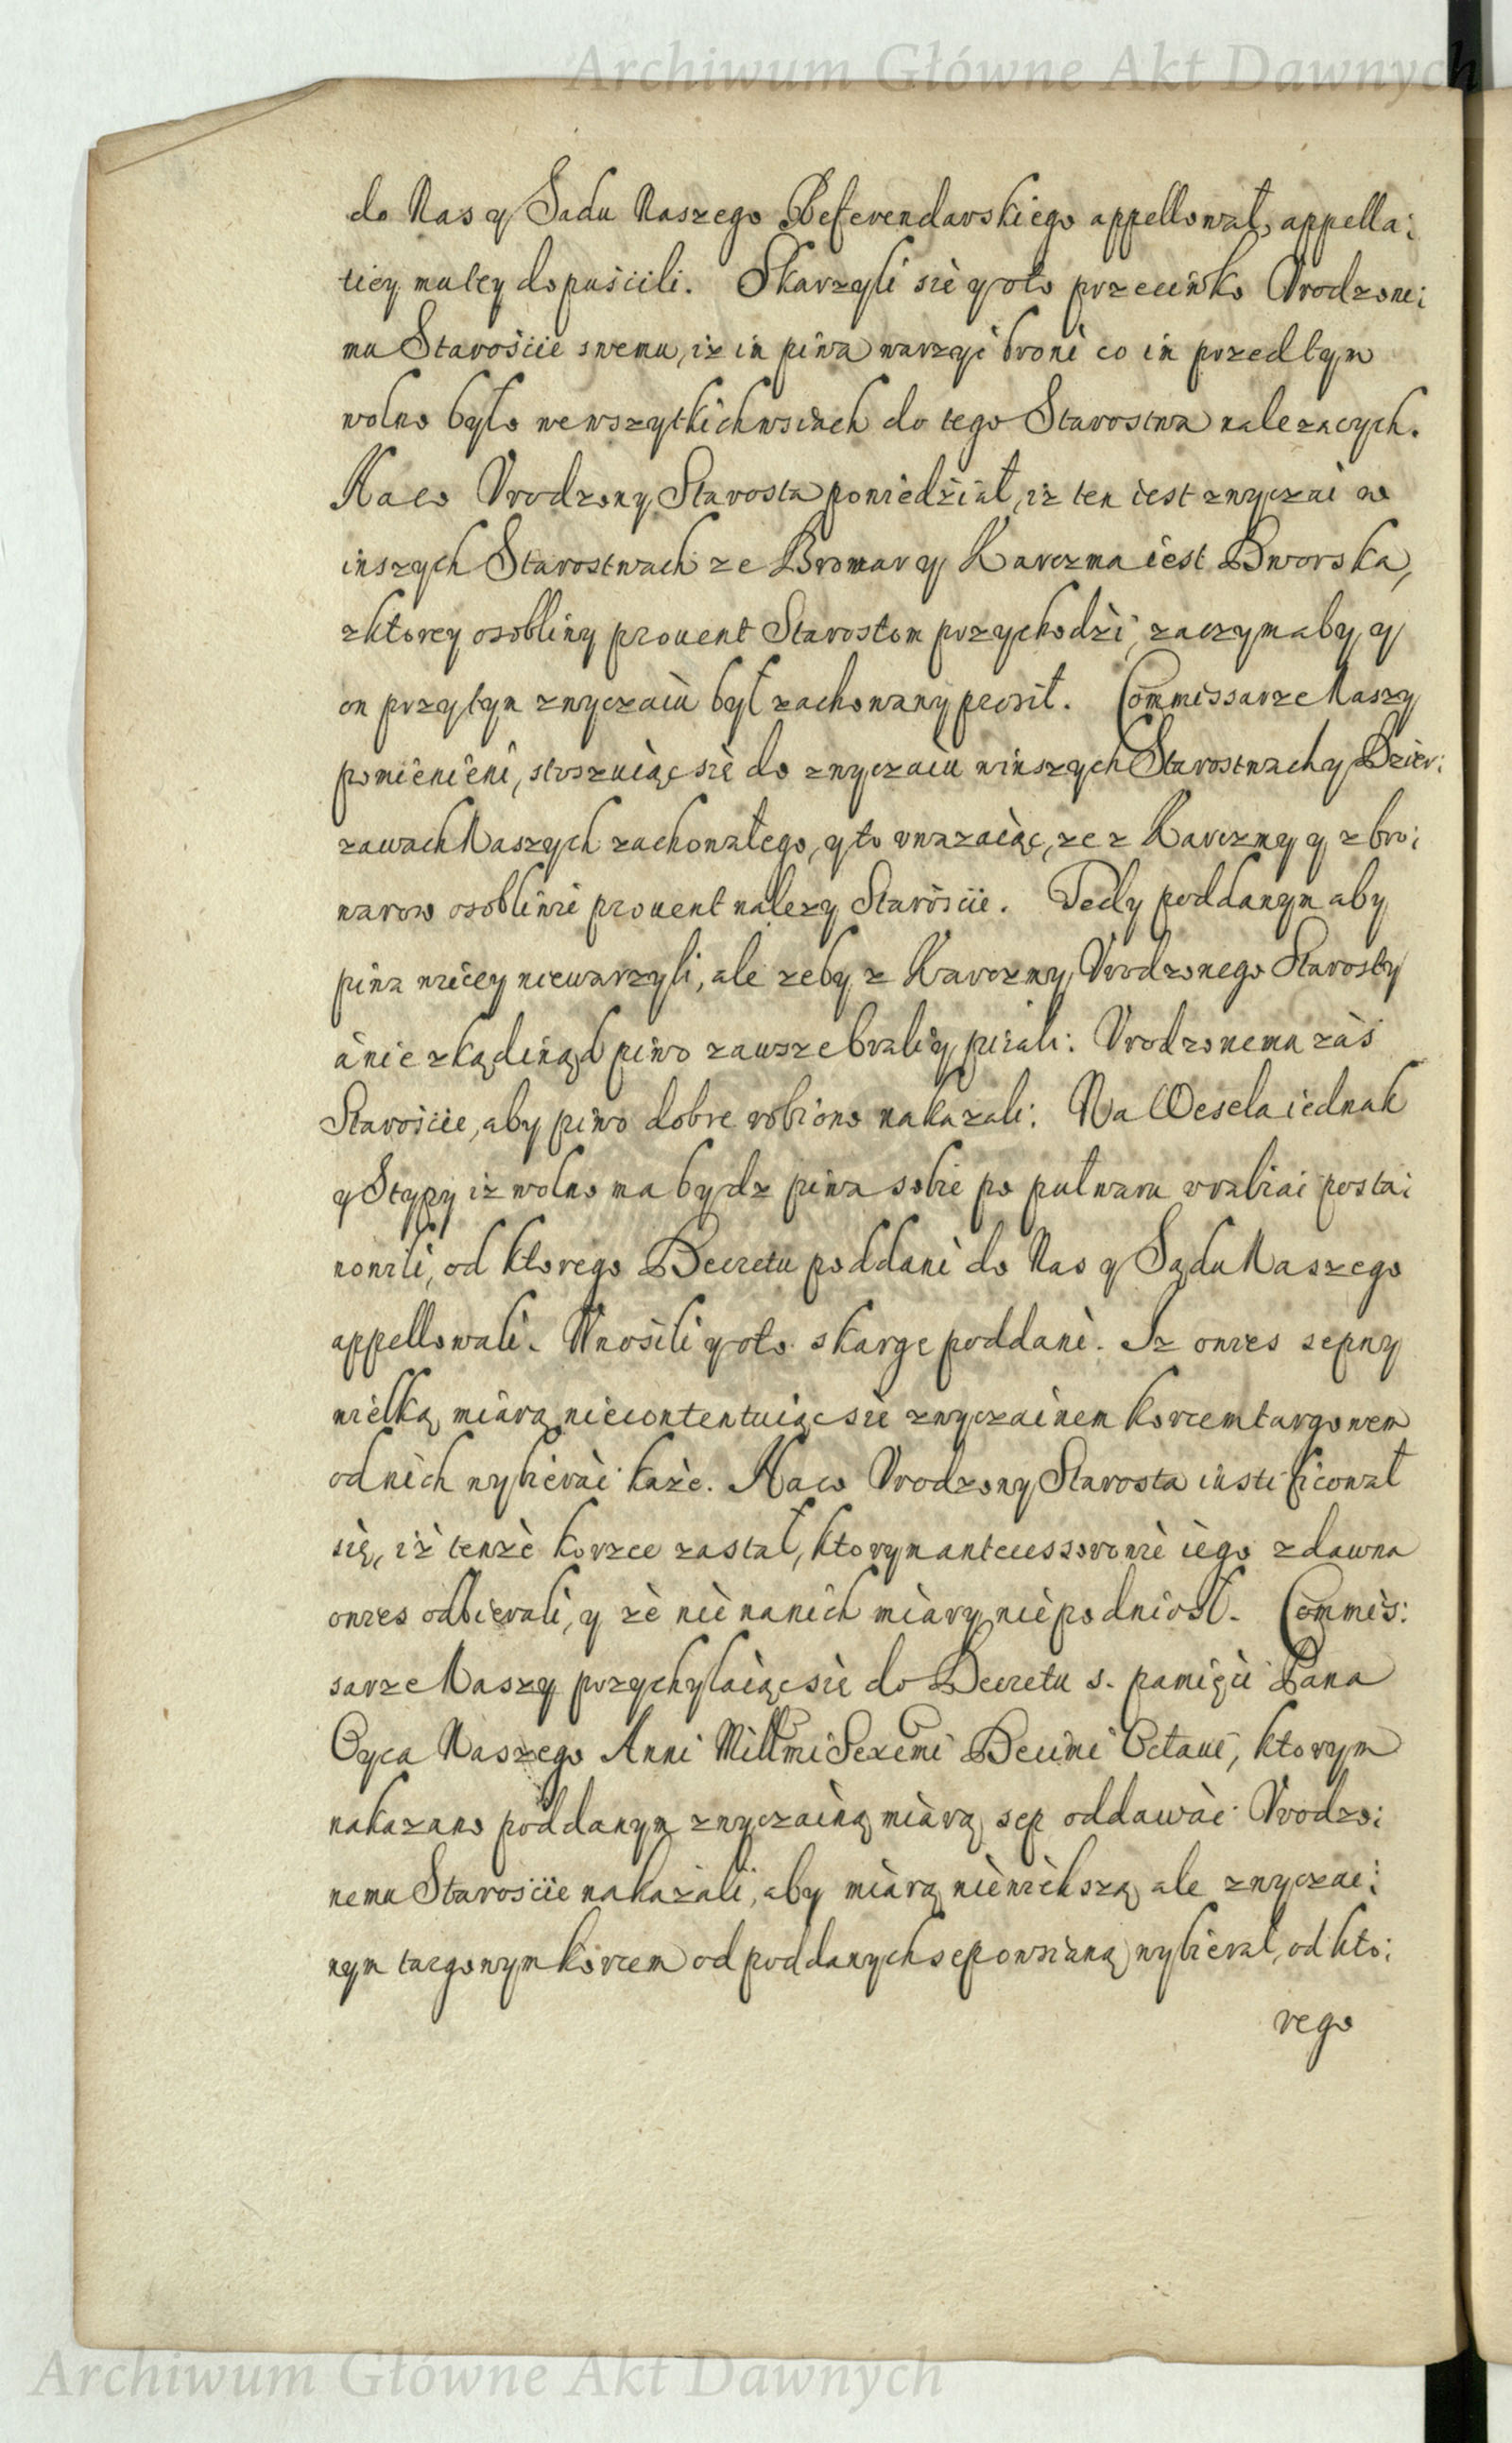 Archiwum Główne Akt Dawnych
do Nas y Sadu Naszego Referendarskiego appellował, appella:
tiey małey dopuscili. Skarzyli się y oto przeciwko Vrodzone:
mu Starosćie swemu, iz im piwa warzyć broni co im przedtym
wolno było we wszytkich wsiach do tego Starostwa nalezacych.
Na co Vrodzony Starosta powiedział, iz ten iest zwyczai w
inszych Starostwach ze Browar y Karczma iest Dworska,
z ktorey osobliwy prouent Starostom przychodzi, zaczym aby y
on przy tym zwyczaiu był zachowany prosił. Commissarze Naszy
pomienieni, stoszuiąc się do zwyczaiu w inszych Starostwach y Dzier:
zawach Naszych zachowałego, y to vwazaiąc, ze z Karczmy y z bro:
warow osobliwie prouent nalezy Starosćie. Tedy poddanym aby
piwa więcey niewarzyli, ale zeby z Karczmy Vrodzonego Starosty
a nie zkądinąd piwo zawsze brali y pijali: Vrodzonemu zaś
Starosćie, aby piwo dobre robiono nakazali: Na Wesela iednak
y Stypy iz wolno ma bydz piwa sobie po puł waru vrabiai posta:
nowili, od ktorego Decretu poddani do Nas y Sądu Naszego
appellowali. Wnosili y oto skargę poddani. Iz owies sepny
wielką miarą niecontentuiąc się zwyczainem korcem targowem
od nich wybierać każe. Na co Vrodzony Starosta iustificował
się, iż tenże korzec zastał, ktorym antecessorowie iego zdawna
owies odbierali, y że nie na nich miary niepodniosł. Commis:
sarze Naszy przychylaiąc się do Decretu s. pamięći Pana
Oyca Naszego Anni Millmi Sexcmi Decimi Octaui, ktorym
nakazano poddanym zwyczainą miarą sep oddawać Vrodzo:
nemu Starosćie nakazali, aby miarą niewiększą ale zwyczai:
nym targowym korcem od poddanych sepowsianą wybierał, od kto:
rego
Archiwum Główne Akt Dawnych